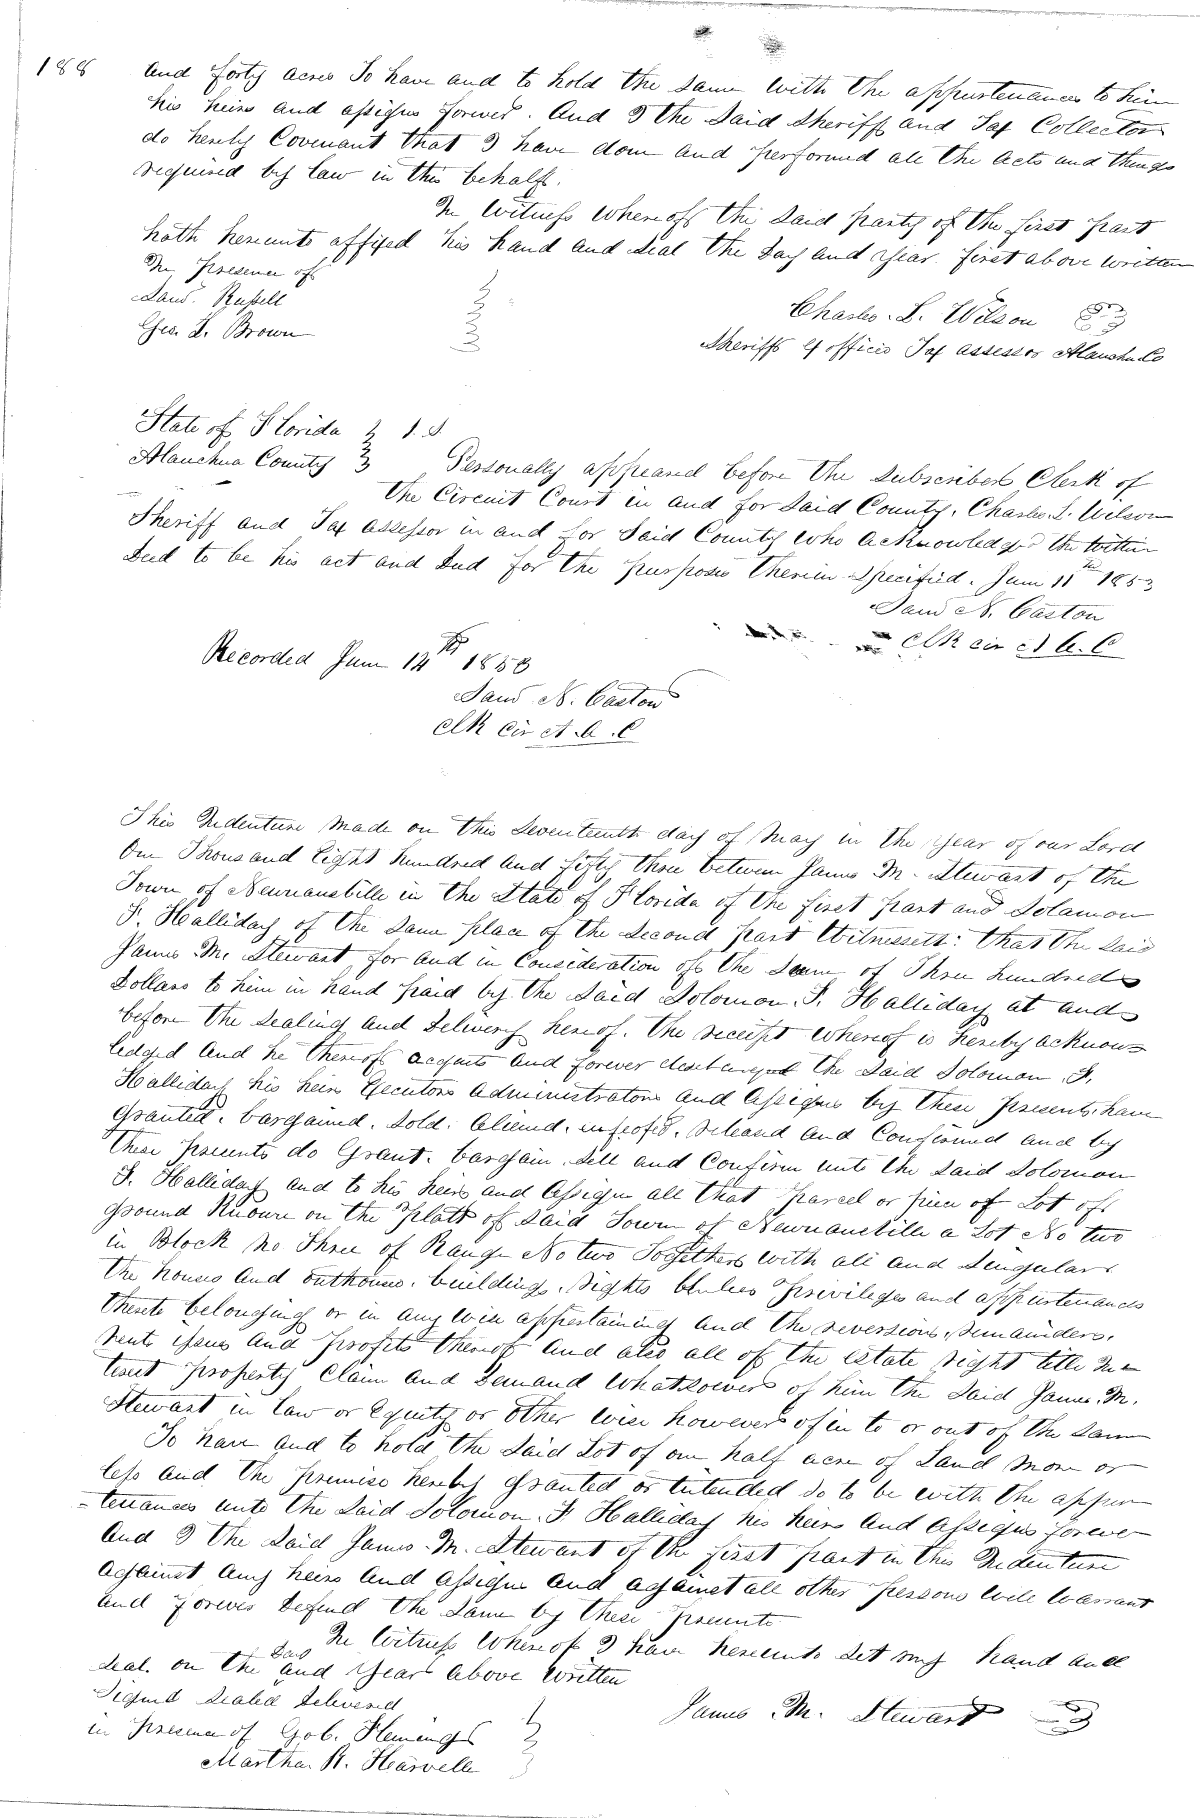 188
and forty acres To have and to hold the same with the appurtenances to him
his heirs and assigns forever. And I the Said Sheriff and Tax Collector
do hereby Covenant that I have done and performed all the acts and things
required by law in this behalf.
In Witness Whereof the Said party of the first part
hath hereunto affixed his hand and seal the day and year first above written
In presence of
Saml. Russell
Geo. L. Brown
Charles. L. Wilson
Sheriff Ex officio Tax assessor Alauchua Co
State of Florida } S. S.
Alauchua County }
Personally appeared before the Subscriber Clerk of
the Circuit Court in and for Said County, Charles L. Wilson
Sheriff and Tax assessor in and for Said County who acknowledged the within
deed to be his act and deed for the purposes therein Specified. June 11th 1853
Saml N. Caston
Clk cir ct A. C
Recorded June 14th 1853
Saml N. Caston
Clk Cir ct A. C
This Indenture made on this Seventeenth day of May in the year of our Lord
One Thousand Eight hundred and fifty three between James M. Stewart of the
Town of Newnansville in the State of Florida of the first part and Solamon
F. Halliday of the Same place of the Second part Witnesseth: that the Said
James M. Stewart for and in Consideration of the Sum of Three hundred
Dollars to him in hand paid by the Said Solomon F. Halliday at and
before the sealing and delivery hereof. the receipt whereof is hereby acknow
ledged and he thereof acquits and forever discharged the Said Solomon F.
Halliday his heirs Executors administrators and assigns by these presents, have
granted, bargained, Sold, aliened, enfeofed, released and Confirmed and by
these presents do Grant, bargain Sell and Confirm unto the Said Solomon
F. Halliday and to his heirs and assigns all that parcel or piece of Lot of
ground Known on the Platt of Said Town of Newnansville a Lot No two
in Block No Three of Range No two Together with all and Singular
the houses and outhouses, buildings, rights privileges and appurtenances
thereto belonging or in any wise appertaining and the reversions, remainders,
rents issues and profits thereof and also all of the estate right title In
terest property Claim and demand whatsoever of him the Said James M.
Stewart in Law or Equity or other wise however of in to or out of the Same
To have and to hold the Said Lot of one half acre of Land more or
less and the premises hereby granted or intended so to be with the appur
-tenances unto the Said Solomon F. Halliday his heirs and assigns forever
And I the Said James M. Stewart of the first part in this Indenture
against any heirs and assigns and against all other persons will warrant
and forever defend the Same by these presents
In Witness Whereof I have hereunto Set my hand and
seal. on the day and year above written
Signed Sealed Delivered
in presence of Geo. Flemings
Martha R. Hearvelle
James M. Stewart